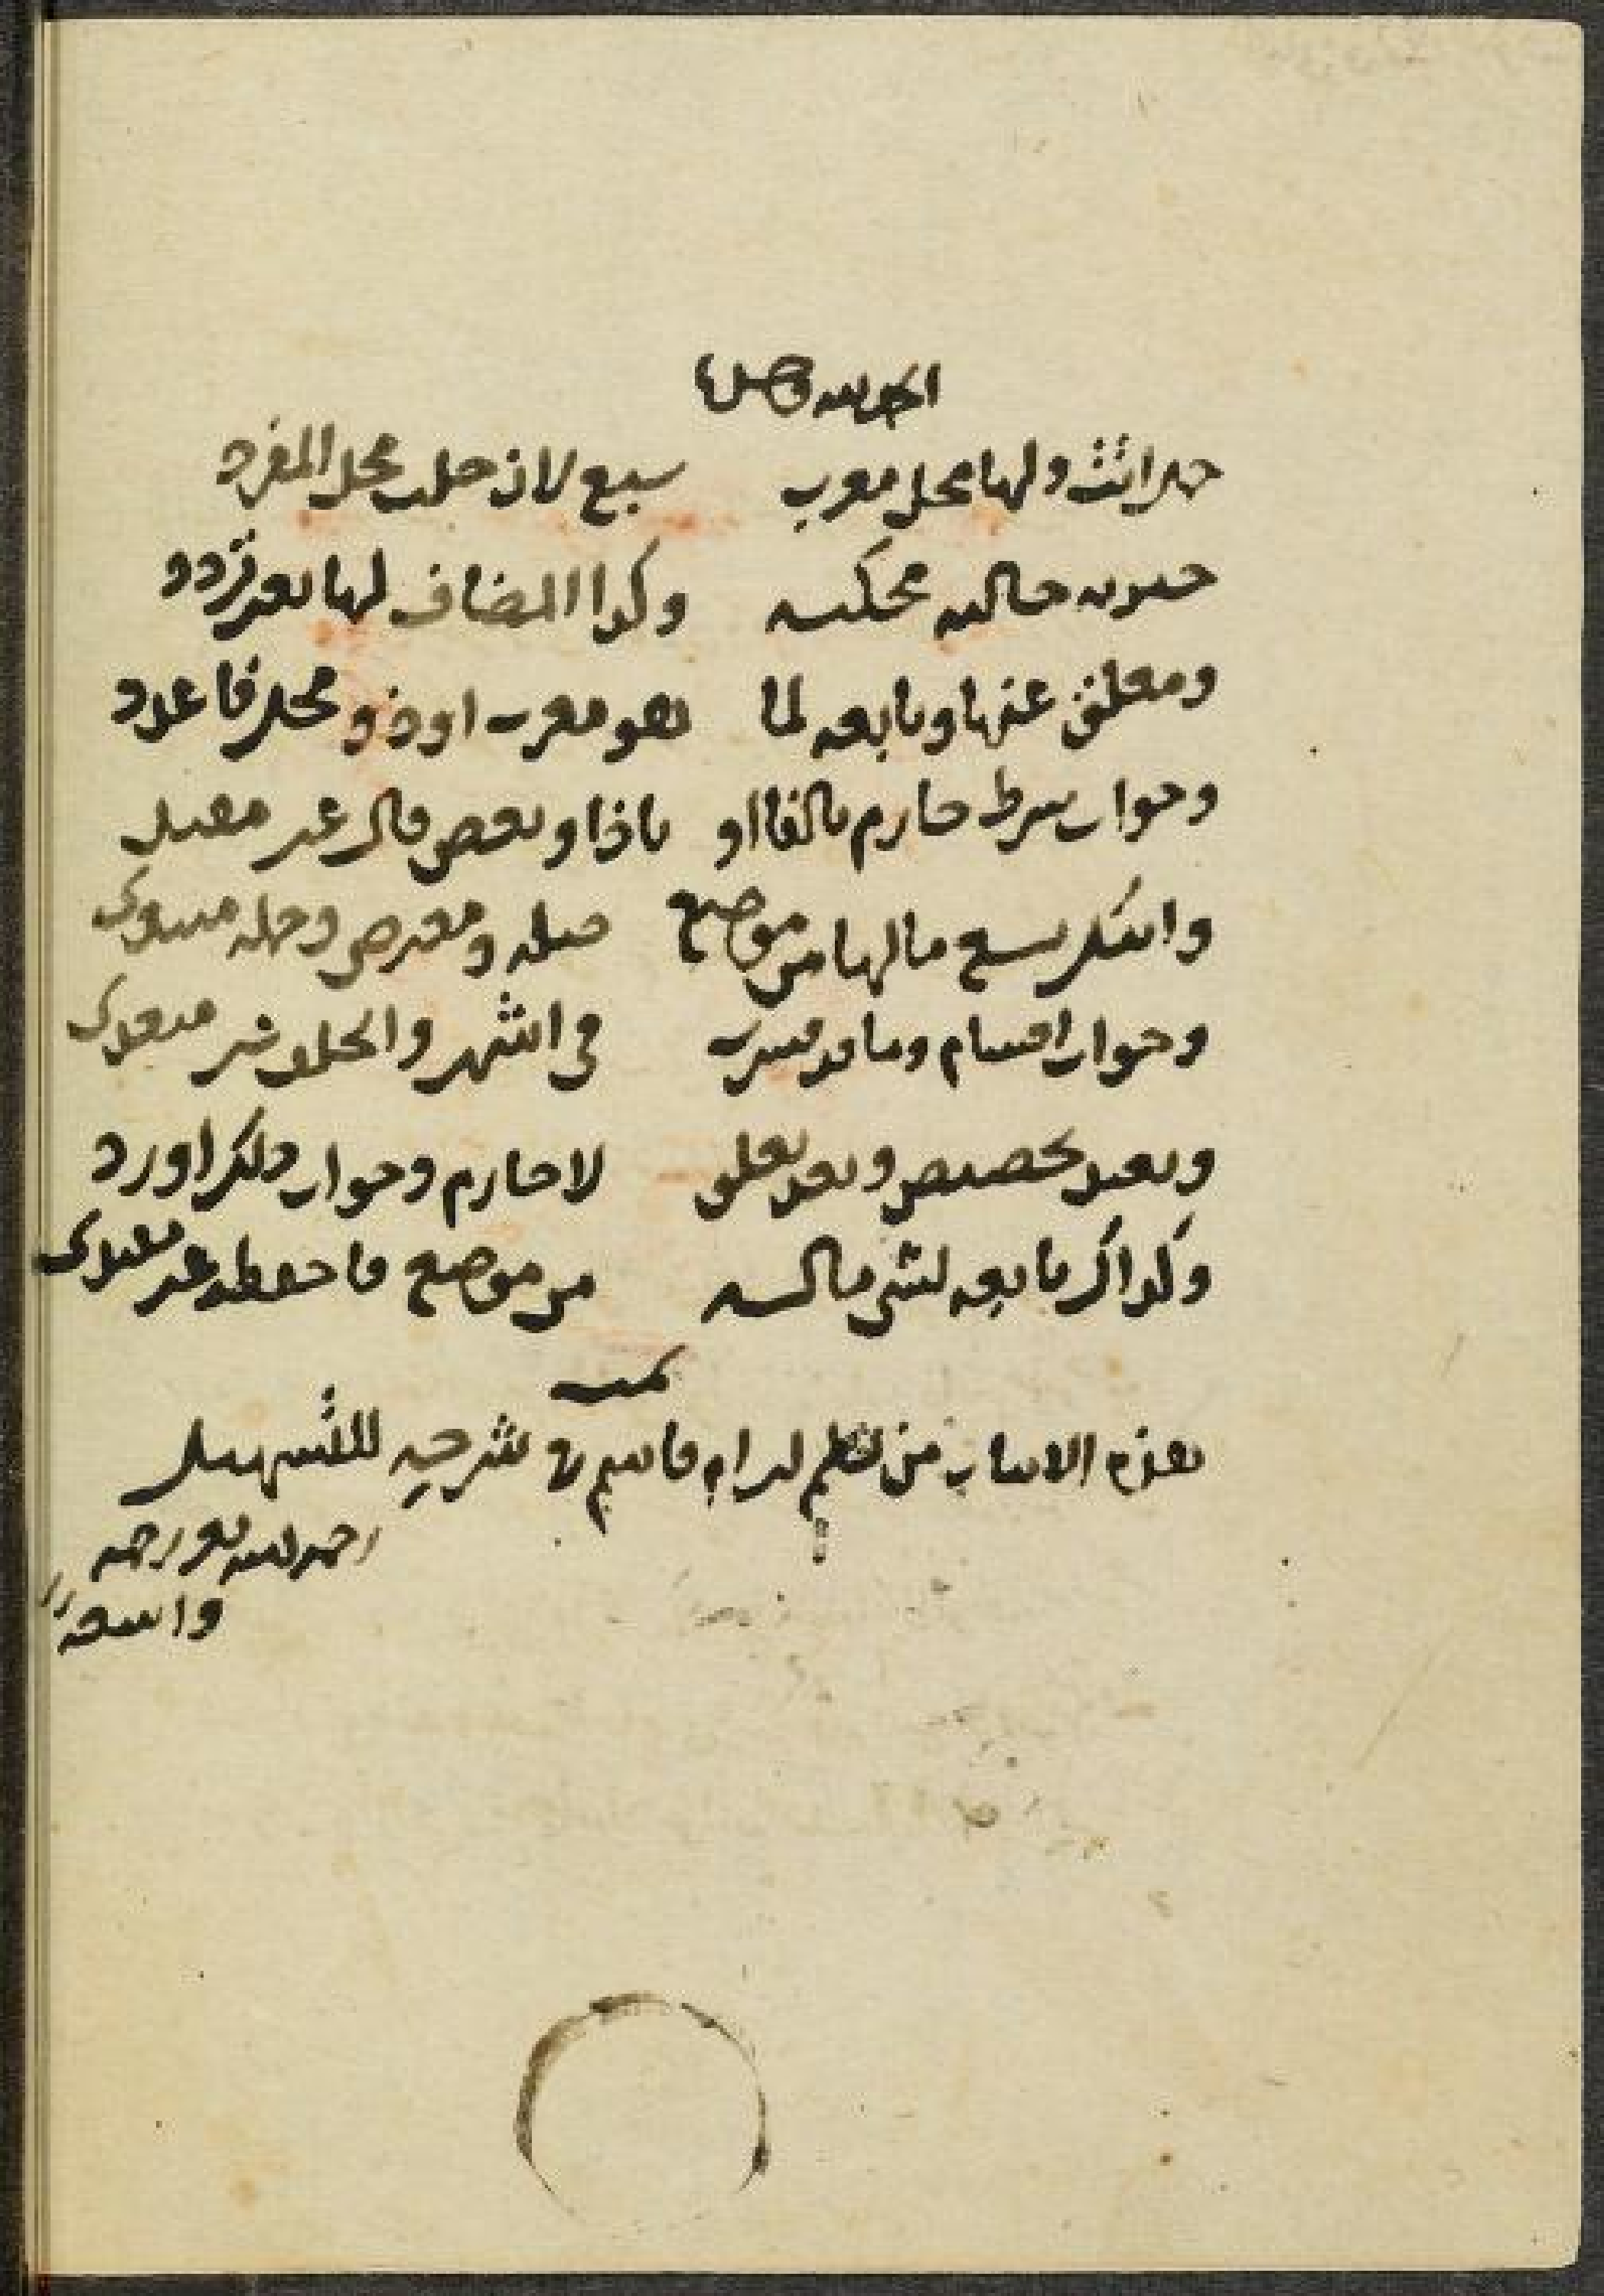 الحمد لله
جمل أتت ولها محل معرب سبع لان حلت محل المفرد
خبرية حالية محكية وكذا المضاف لها بغير تردد
ومعلق عنها وتابعة لما هو معرب او ذو محل فاعدد
وجواب شرط جازم بالفا او باذا وبعض قال غير مقيد
واتتك سبع مالها من موضع صلة ومعترض وجملة مبتدى
وجواب اقسام وما قد فسرت في اشهر والخلف غير مبعد
وبعيد تحضيض وبعد تعلق لا جازم وجواب ذلك اورد
وكذاك تابعة لشي ماله من موضع فاحفظه غير مفند
تمت
هذه الابيات من نظم ابن ام قاسم في شرحه للتسهيل
رحمه الله تعالى رحمة
واسعة